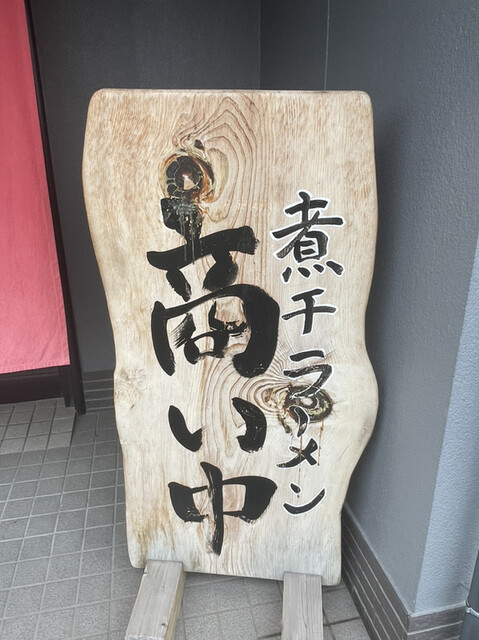 煮干ラーメン
商い中